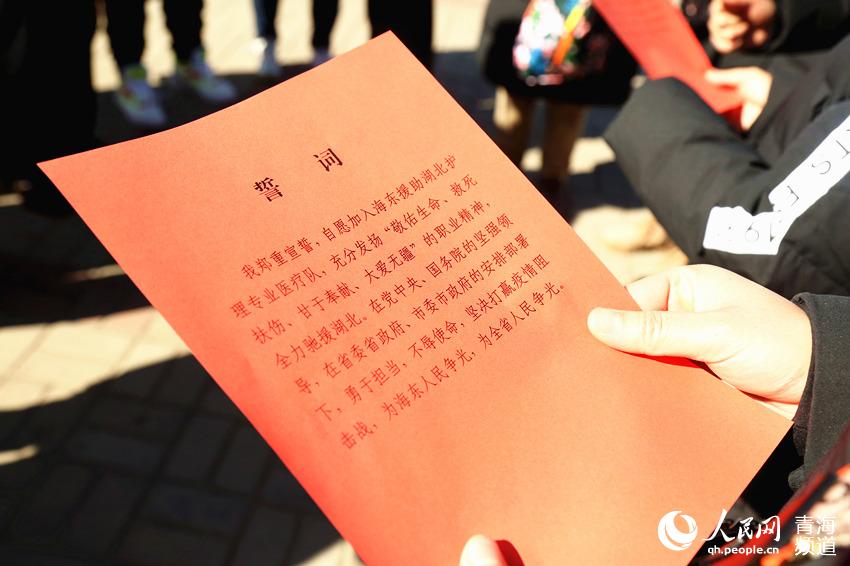 誓 词
我郑重宣誓，自愿加入海东援助湖北护
理专业医疗队，充分发扬“敬佑生命、救死
扶伤、甘于奉献、大爱无疆”的职业精神，
全力驰援湖北。在党中央、国务院的坚强领
导，在省委省政府、市委市政府的安排部署
下，勇于担当，不辱使命，坚决打赢疫情阻
击战，为海东人民争光，为全省人民争光。
人民网
qh.people.cn
青海
频道